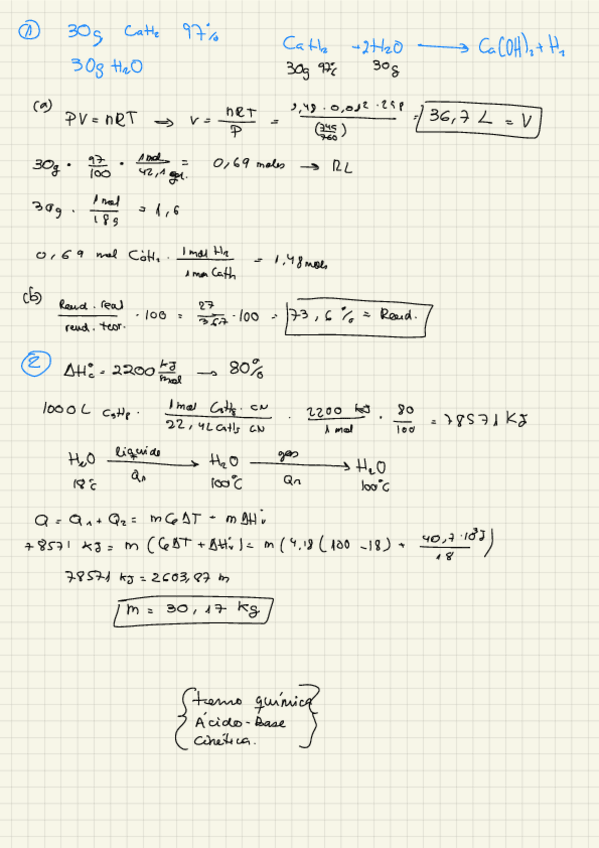 ① 30g CaH₂ 97%
30g H₂O
CaH₂ + 2H₂O ⟶ Ca(OH)₂ + H₂
30g 97% 30g
(a) PV = nRT → V = nRT/P = 1,48 · 0,082 · 298/(745/760) = 36,7 L = V
30g · 97/100 · 1mol/42,1 gr. = 0,69 moles → RL
30g · 1mol/18g = 1,6
0,69 mol CaH₂ · 1mol H₂/1mol CaH₂ = 1,48 moles
(b) Rend. real/rend. teor. · 100 = 27/36,7 · 100 = 73,6 % = Rend.
② ΔH°c = 2200 kJ/mol → 80%
1000 L C₃H₈ · 1mol C₃H₈ CN/22,4L C₃H₈ CN · 2200 kJ/1 mol · 80/100 = 78571 KJ
H₂O líquido ⟶ H₂O gas ⟶ H₂O
18°C Q₁ 100°C Q₁ 100°C
Q = Q₁ + Q₂ = m Ce ΔT + m ΔH°v
78571 kJ = m (Ce ΔT + ΔH°v) = m (4,18 (100 - 18) + 40,7·10³J/18)
78571 kJ = 2603,87 m
m = 30,17 kg
termo química
Ácido-Base
Cinética.